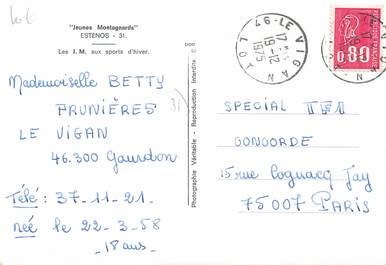 lot
"Jeunes Montagnards"
ESTENOS - 31.
Les J. M. aux sports d'hiver.
Mademoiselle BETTY
PRUNIÈRES
LE VIGAN
46.300 Gourdon
Télé: 37-11-21.
née le 22-3-58
-18 ans-
31
Photographie Véritable - Reproduction Interdite
46 - LE VIGAN
17 H
9-12
1975
LOT
0,80
SPECIAL TF1
CONCORDE
15 rue Cognacq Jay
75007 PARIS